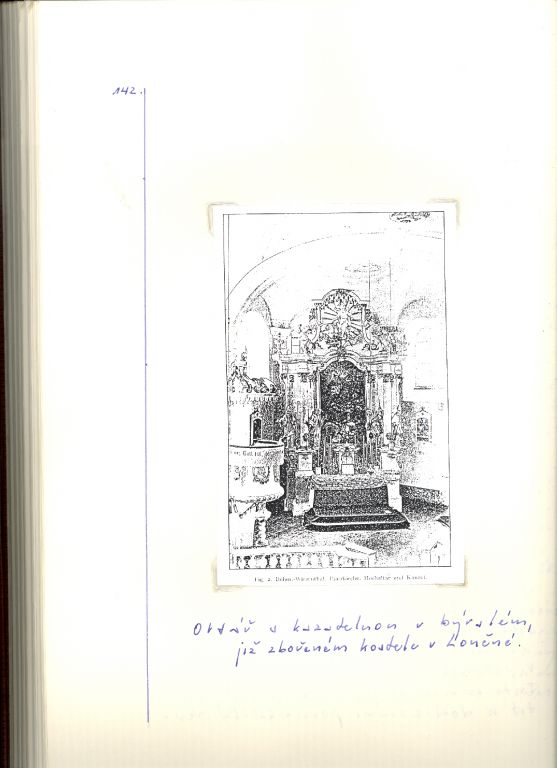 142.
Fig. 2. Böhm.-Wiesenthal, Pfarrkirche, Hochaltar und Kanzel.
Oltář s kazatelnou v bývalém,
již zbořeném kostele v Loučné.